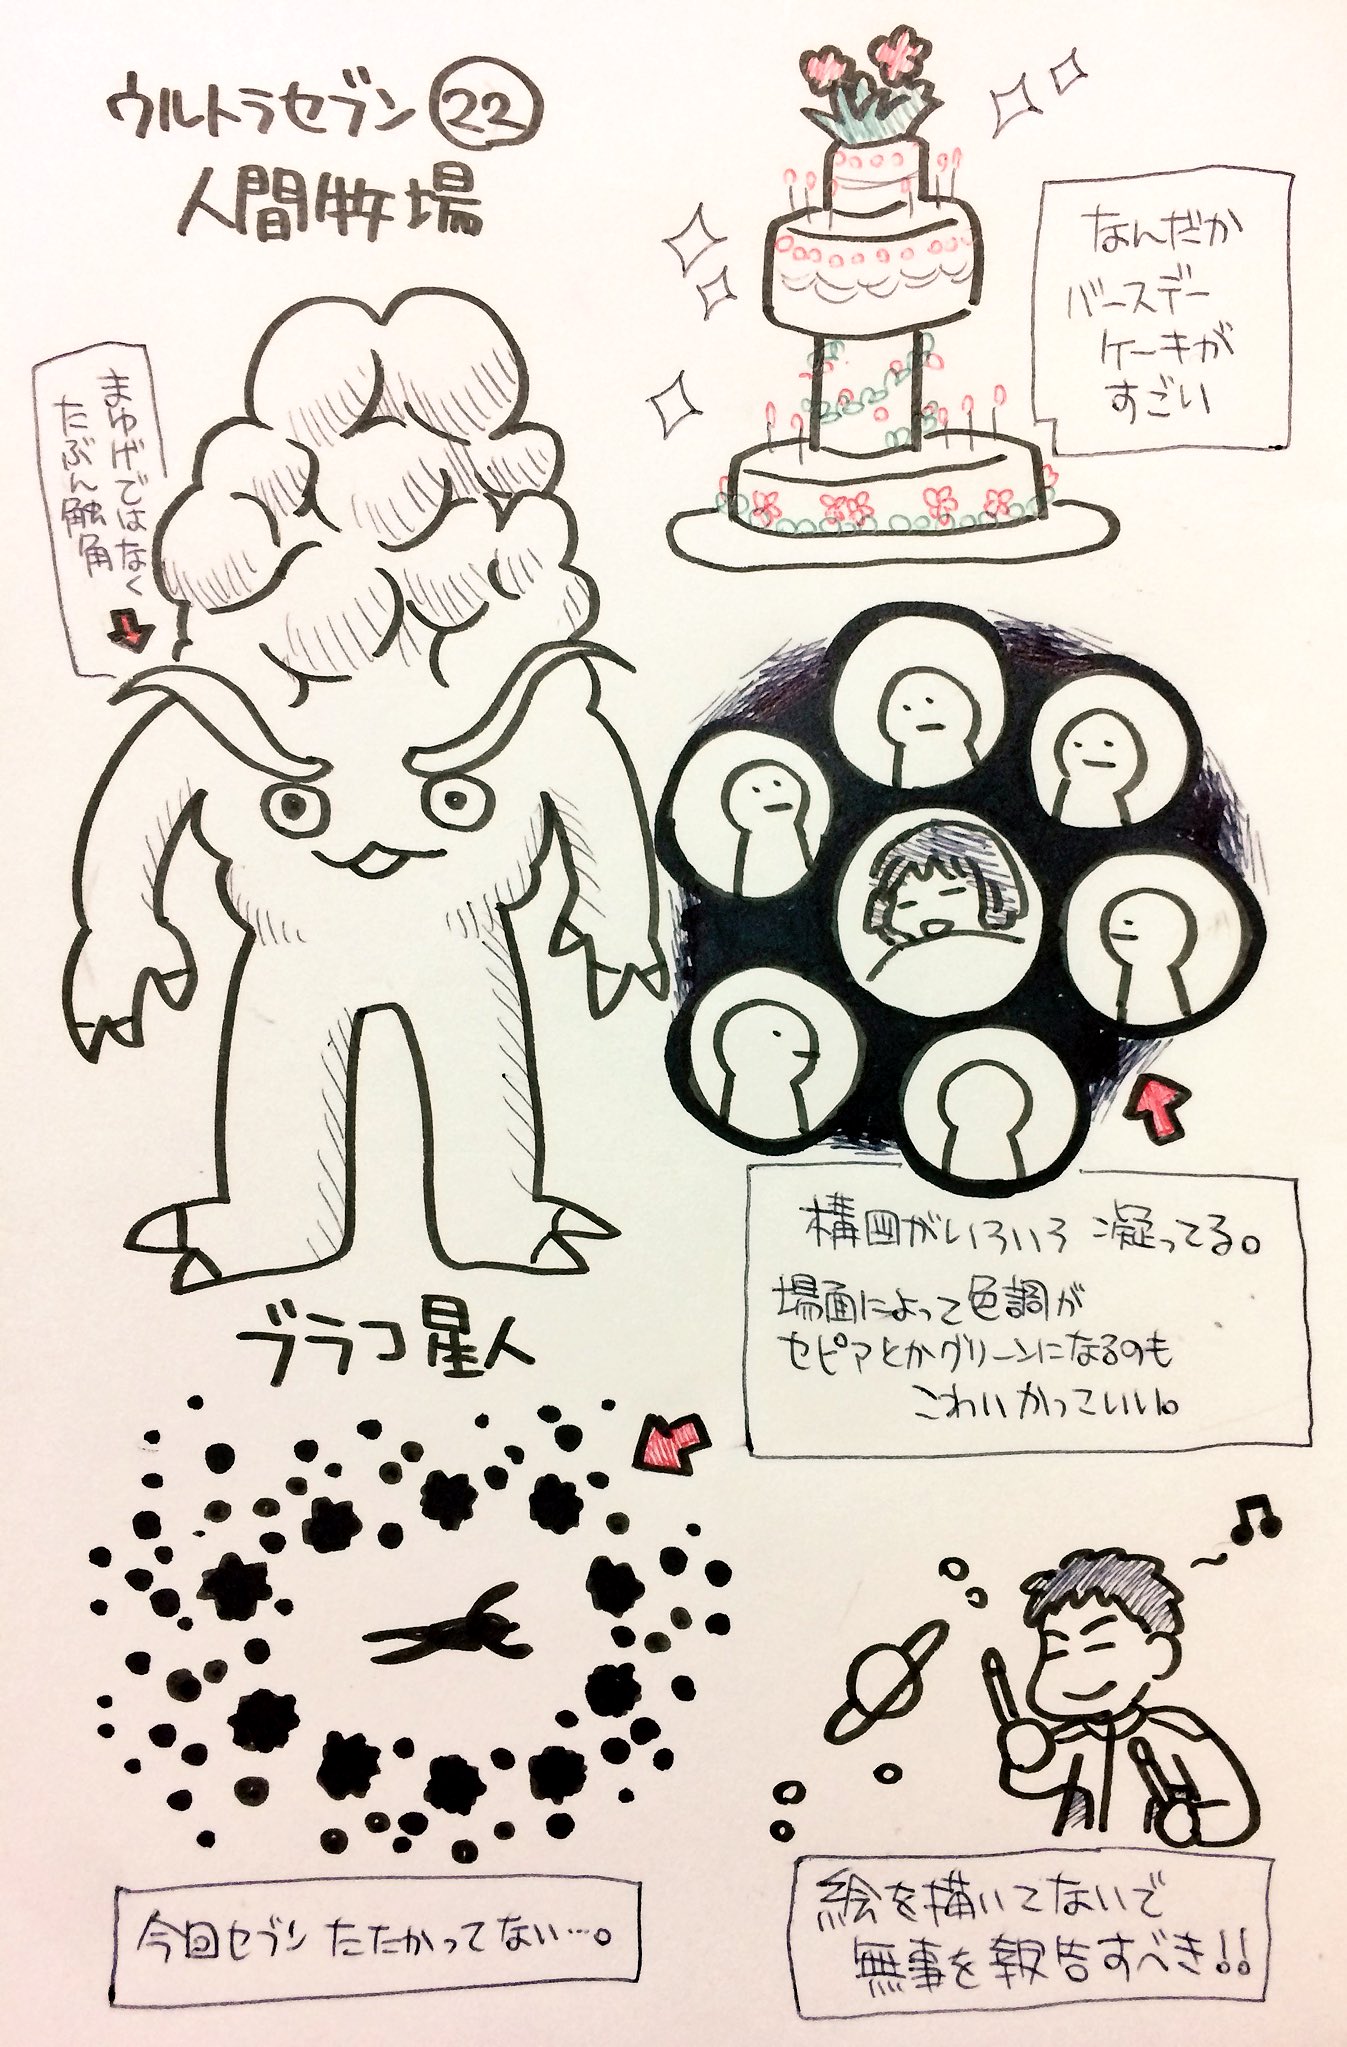 ウルトラセブン 22
人間牧場
なんだか
バースデー
ケーキが
すごい
まゆげではなく
たぶん触角
ブラコ星人
構図がいろいろ凝ってる。
場面によって色調が
セピアとかグリーンになるのも
こわいかっこいい。
今回セブンたたかってない…。
絵を描いてないで
無事を報告すべき!!